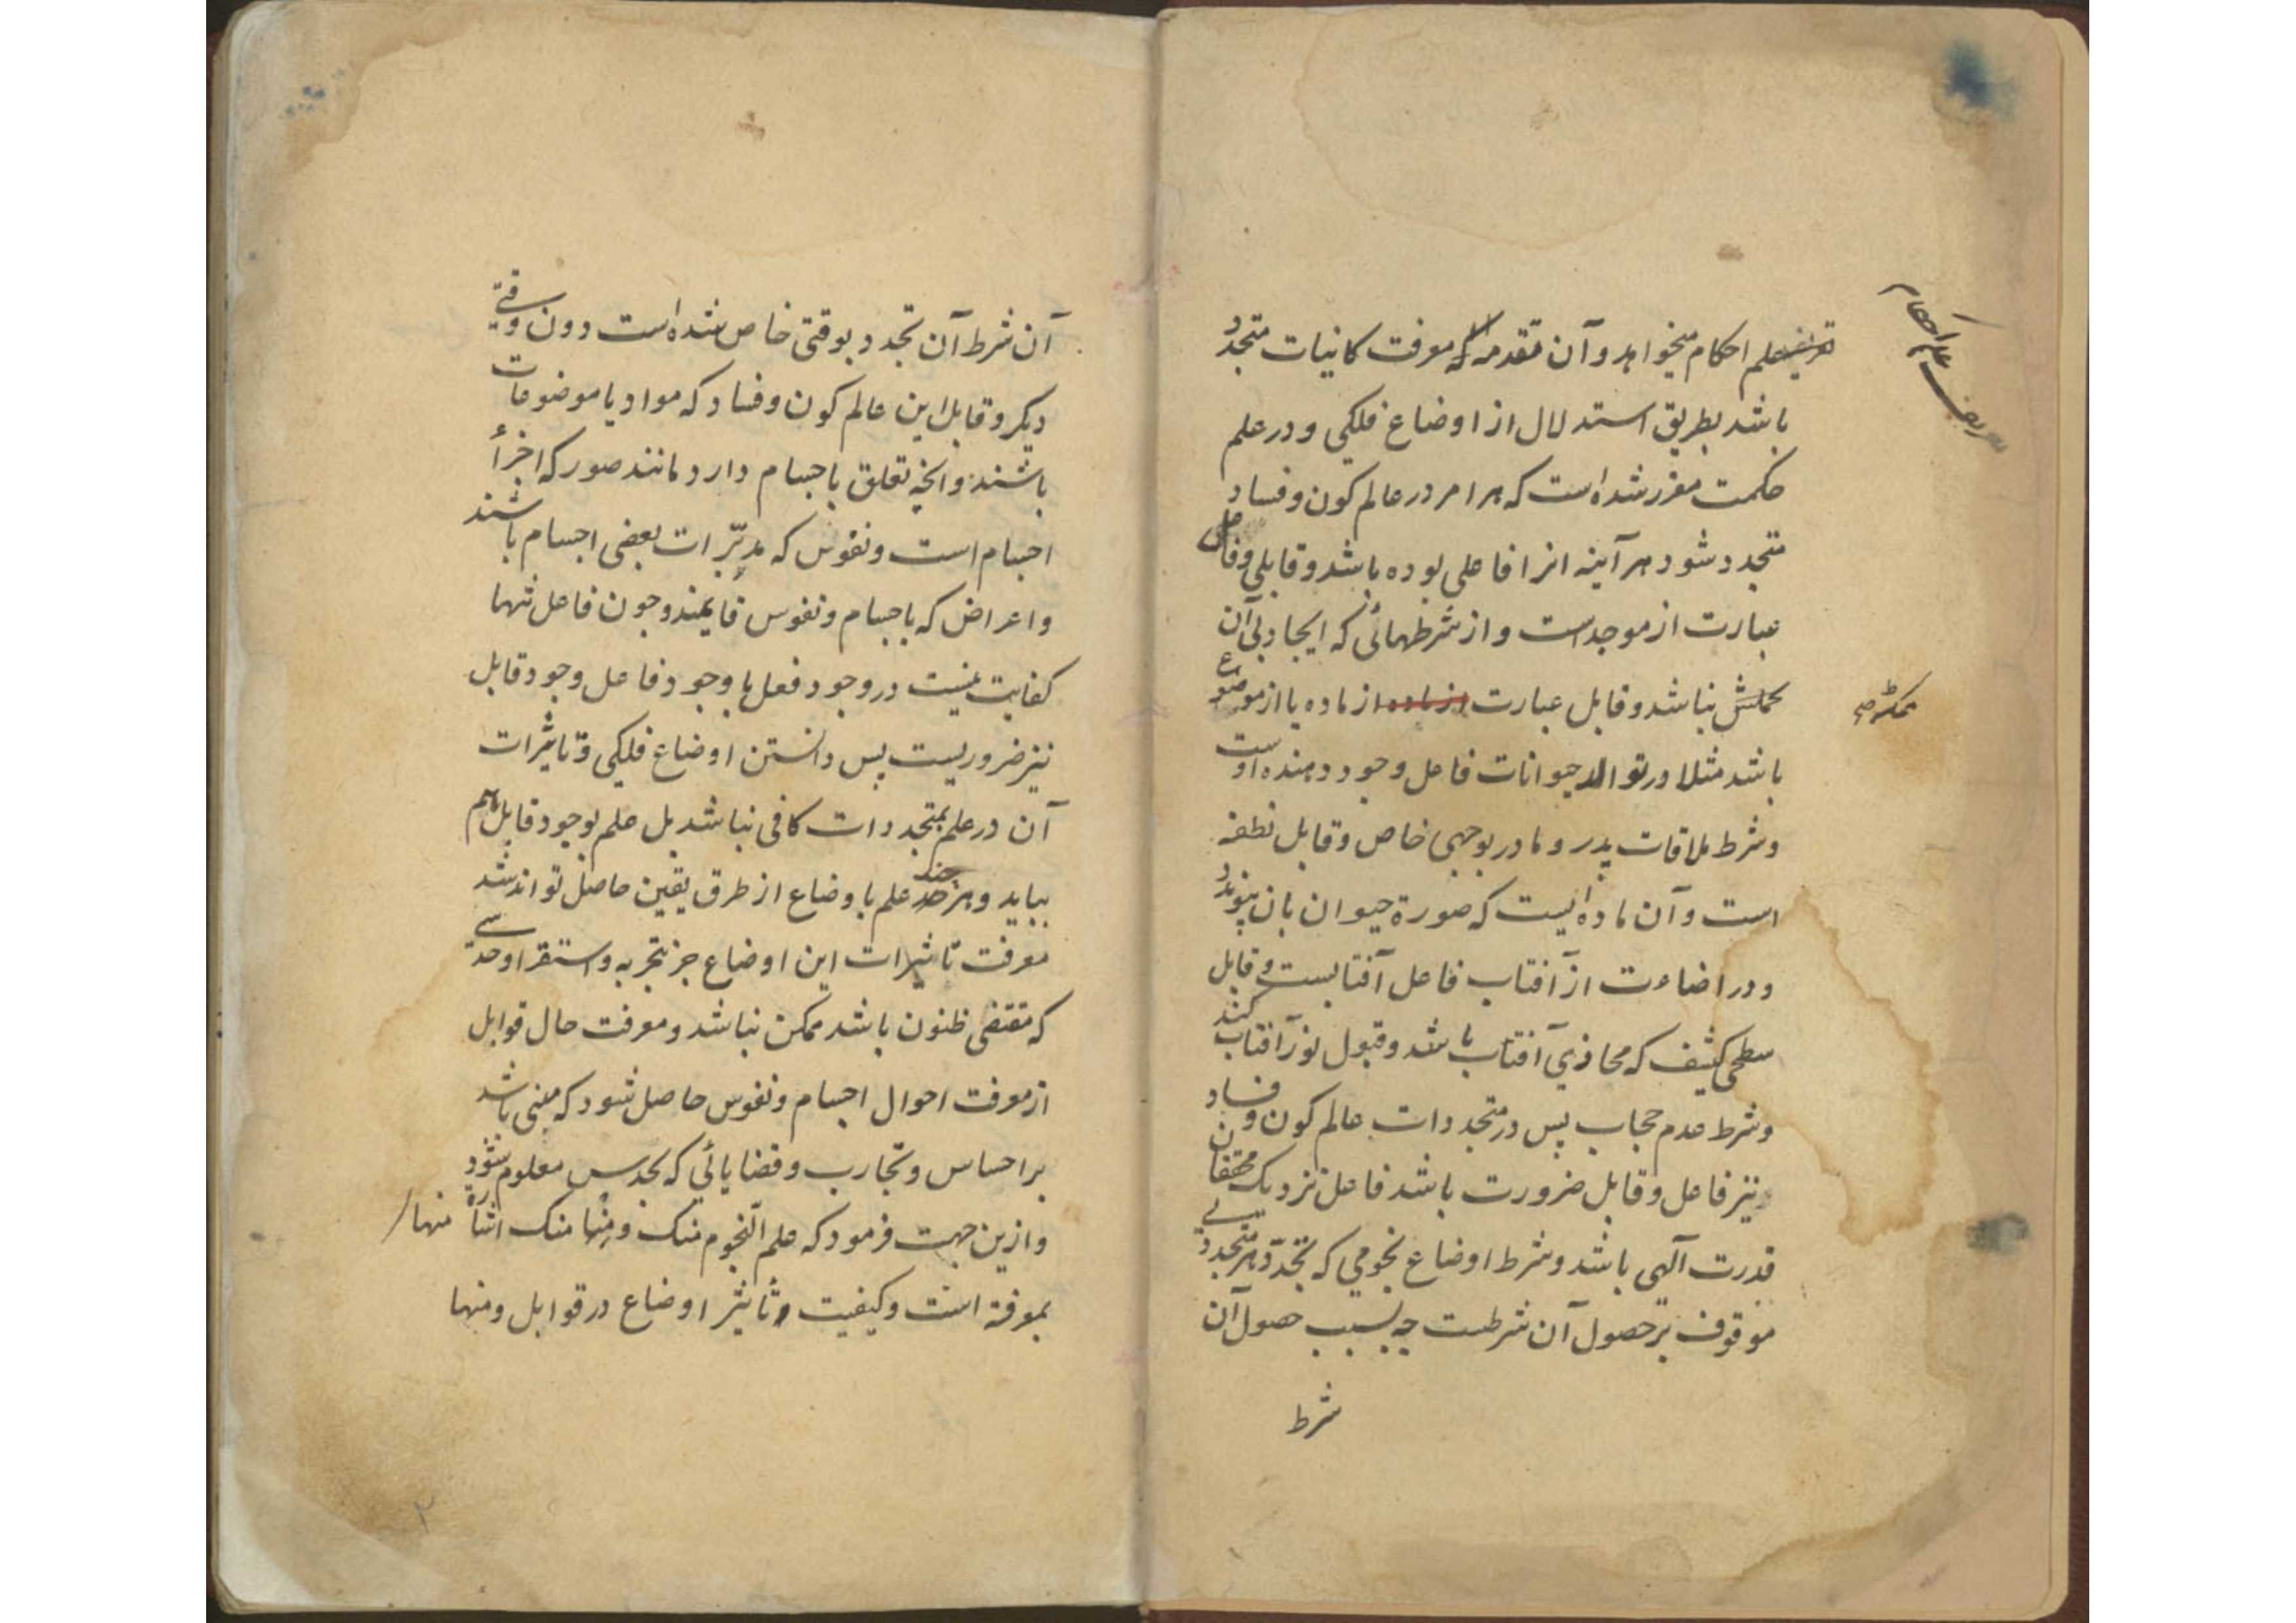 تعریف علم احکام
تعریف علم احکام میخواهد و آن مقدمه که معرفت کاینات متجدد
باشد بطریق استدلال از اوضاع فلکی و در علم
حکمت مقرر شده است که هر امر در عالم کون و فساد
متجدد شود هر آینه انرا فاعلی بوده باشد و قابلی و فاعل
عبارت از موجد است و از شرطهائی که ایجاد بی آن
نباشد و قابل عبارت از ماده از ماده یا از موضوع
باشد مثلا در توالد حیوانات فاعل وجود دهنده اوست
و شرط ملاقات پدر و مادر بوجهی خاص و قابل نطفه
است و آن ماده ایست که صورة حیوان بان پیوندد
و در اضاءت از آفتاب فاعل آفتابست و قابل
سطحی کثیف که محاذی آفتاب باشد و قبول نور آفتاب کند
و شرط عدم حجاب پس در متجددات عالم کون و فساد
نیز فاعل و قابل ضرورت باشد فاعل نزدیک محققان
قدرت آلهی باشد و شرط اوضاع نجومی که تجدد هر متجددی
موقوف بر حصول آن شرطست چه بسبب حصول آن
شرط
آن شرط آن تجدد بوقتی خاص شده است دون وقتی
دیگر و قابل این عالم کون و فساد که مواد یا موضوعات
باشند و انچه تعلق باجسام دارد مانند صور که اجزأ
اجسام است و نفوس که مدبّرات بعضی اجسام باشند
و اعراض که باجسام و نفوس قایمند و چون فاعل تنها
کفایت نیست در وجود فعل با وجود فاعل وجود قابل
نیز ضروریست پس دانستن اوضاع فلکی و تاثیرات
آن در علم بمتجددات کافی نباشد بل علم بوجود قابل هم
بباید و هرچند علم باوضاع از طرق یقین حاصل تواند شد
معرفت تاثیرات این اوضاع جز بتجربه و استقرا و حدسی
که مقتضی ظنون باشد ممکن نباشد و معرفت حال قوابل
از معرفت احوال اجسام و نفوس حاصل شود که مبنی باشد
بر احساس و تجارب و قضایائی که بحدس معلوم شود
و ازین جهت فرمود که علم النجوم منک و منها منک اشاره منها
بمعرفة است و کیفیت تاثیر اوضاع در قوابل و منها
۲